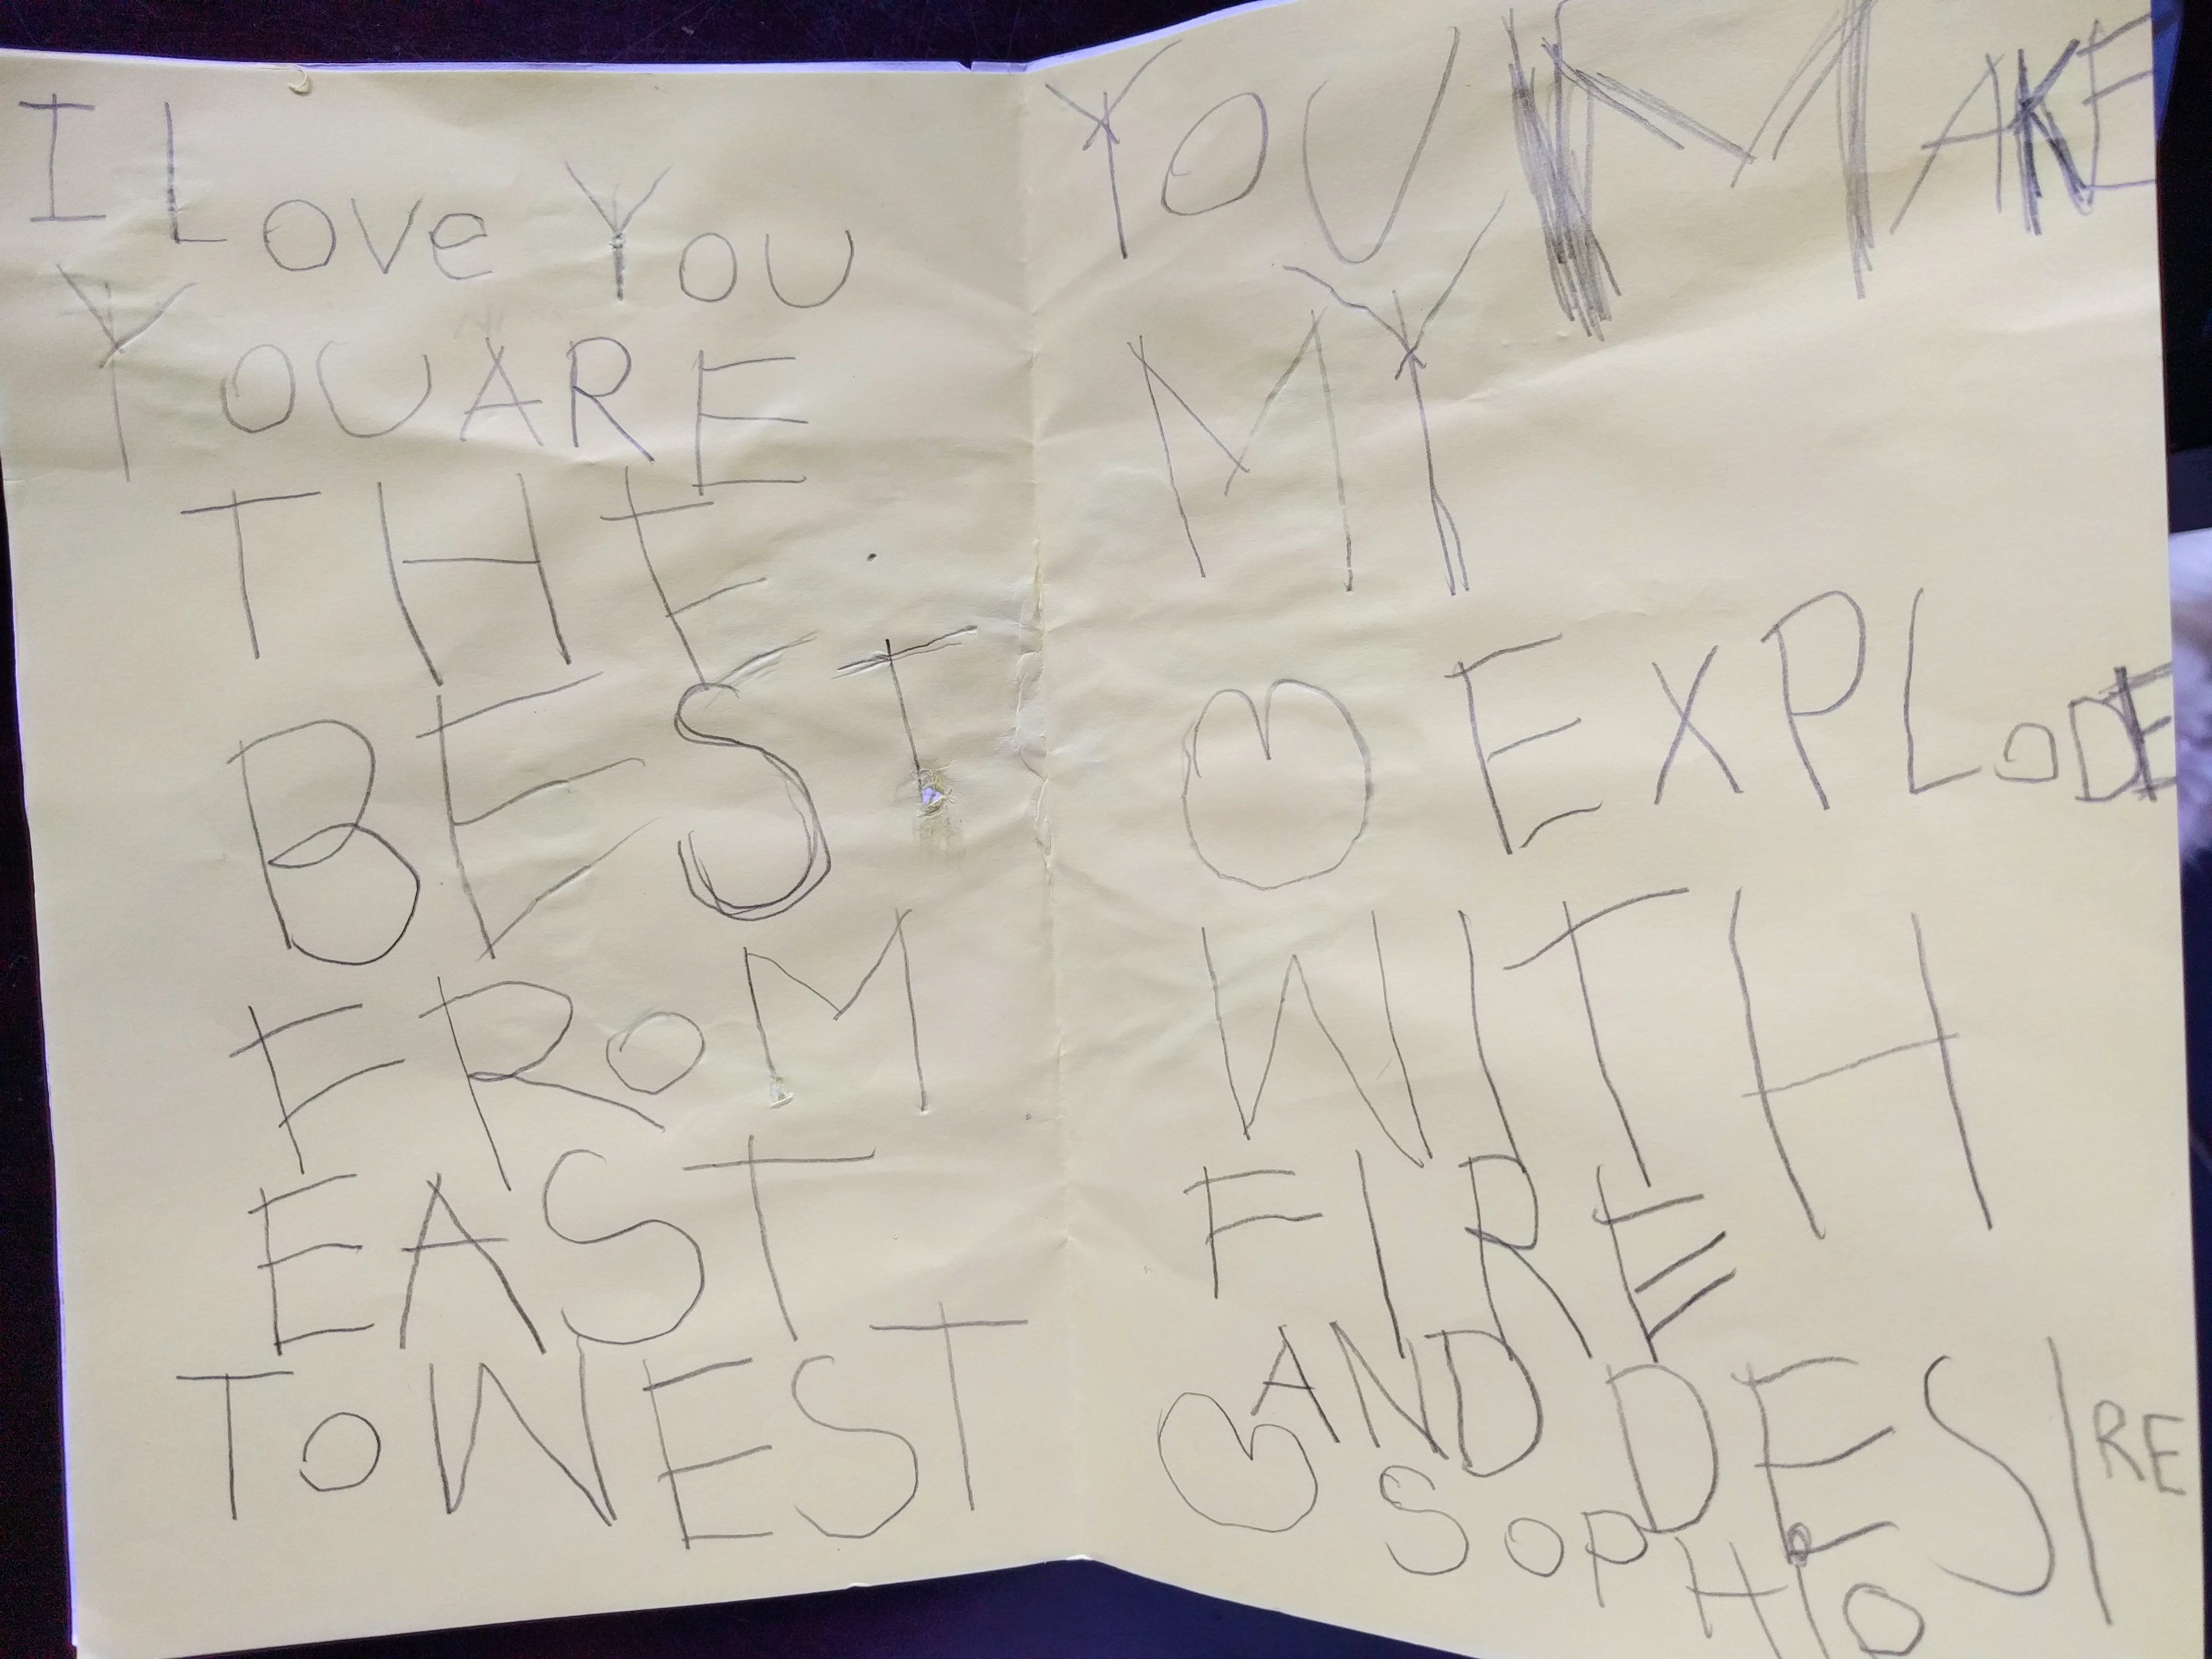 I Love You
YOU ARE
THE
BEST
FROM
EAST
TO WEST
YOU MAKE
MY
EXPLODE
WITH
FIRE
AND DESIRE
SOPHIO